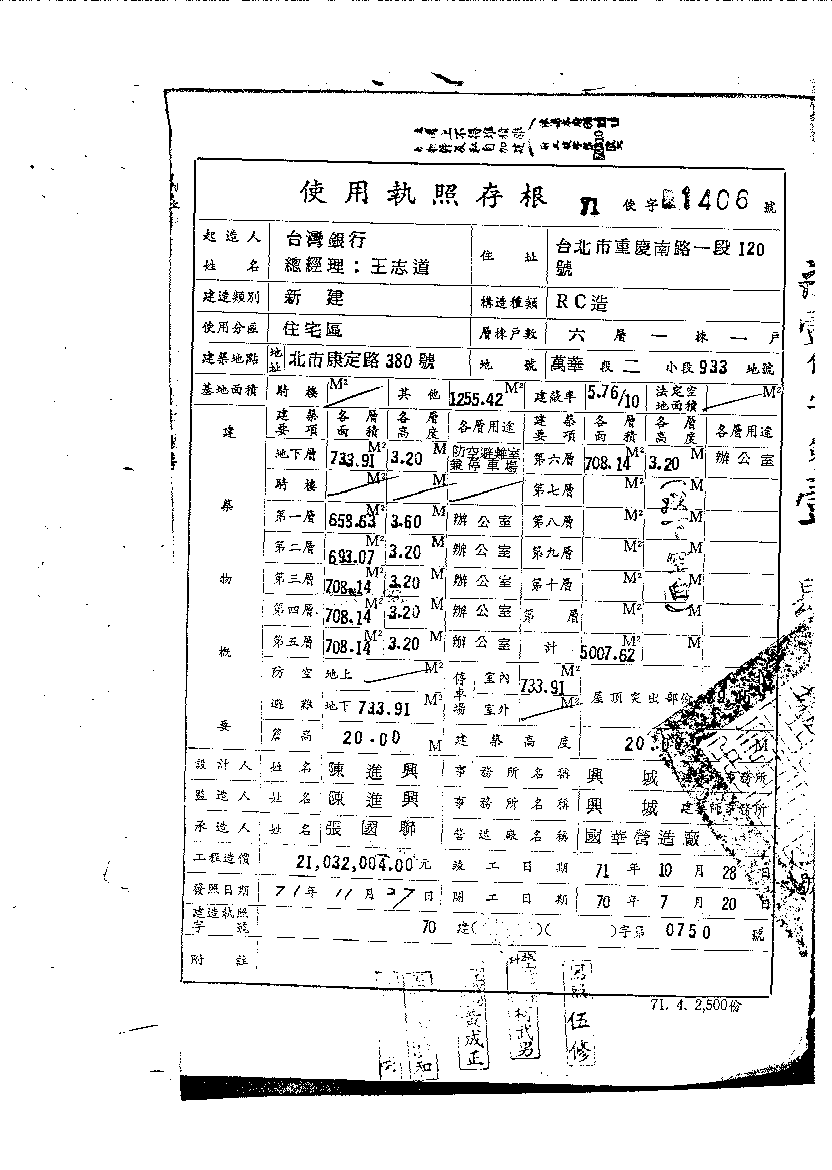 使用執照存根 71 使字第1406號
起造人姓名 台灣銀行 總經理：王志道 住址 台北市重慶南路一段120號
建造類別 新建 構造種類 RC造
使用分區 住宅區 層棟戶數 六層一棟一戶
建築地點 地址 北市康定路380號 地號 萬華段二小段933地號
基地面積 騎樓 M² 其他 1255.42 M² 建蔽率 5.76/10 法定空地面積 M²
建築物概要
建築要項 各層面積 各層高度 各層用途 建築要項 各層面積 各層高度 各層用途
地下層 733.91 M² 3.20 M 防空避難室兼停車場 第六層 708.14 M² 3.20 M 辦公室
騎樓 M² M 第七層 M² M
第一層 653.63 M² 3.60 M 辦公室 第八層 M² M
第二層 693.07 M² 3.20 M 辦公室 第九層 M² M
第三層 708.14 M² 3.20 M 辦公室 第十層 M² M
第四層 708.14 M² 3.20 M 辦公室 第 層 M² M
第五層 708.14 M² 3.20 M 辦公室 計 5007.62 M² M
(以下空白)
防空避難 地上 M² 停車場 室內 733.91 M² 屋頂突出部份
地下 733.91 M² 室外 M²
簷高 20.00 M 建築高度 20.00 M
設計人 姓名 陳進興 事務所名稱 興城建築師事務所
監造人 姓名 陳進興 事務所名稱 興城建築師事務所
承造人 姓名 張國聯 營造廠名稱 國華營造廠
工程造價 21,032,004.00元 竣工日期 71年10月28日
發照日期 71年11月27日 開工日期 70年7月20日
建造執照字號 70 建( )( )字第 0750 號
附註
71. 4. 2,500份